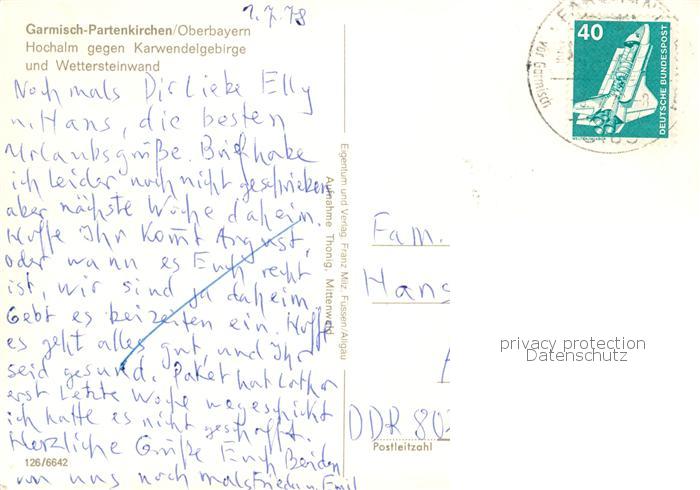 1.7.78
Garmisch-Partenkirchen/Oberbayern
Hochalm gegen Karwendelgebirge
und Wettersteinwand
Noch mals Dir liebe Elly
u. Hans, die besten
Urlaubsgrüße. Brief habe
ich leider noch nicht geschrieben
aber nächste Woche daheim.
Hoffe Ihr komt August,
oder wann es Euch recht
ist, wir sind ja daheim.
Gebt es beizeiten ein. Hoffe
es geht alles gut, und Ihr
seid gesund. Paket hat Lothar
erst letzte Woche weggeschickt
ich hatte es nicht geschafft.
Herzliche Grüße Euch Beiden
von uns noch mals Frieda u. Emil
126/6642
Eigentum und Verlag Franz Milz, Füssen/Allgäu
Aufnahme Thonig, Mittenwald
vor Garmisch
40
DEUTSCHE BUNDESPOST
Fam.
Hans
privacy protection
Datenschutz
DDR 80
Postleitzahl